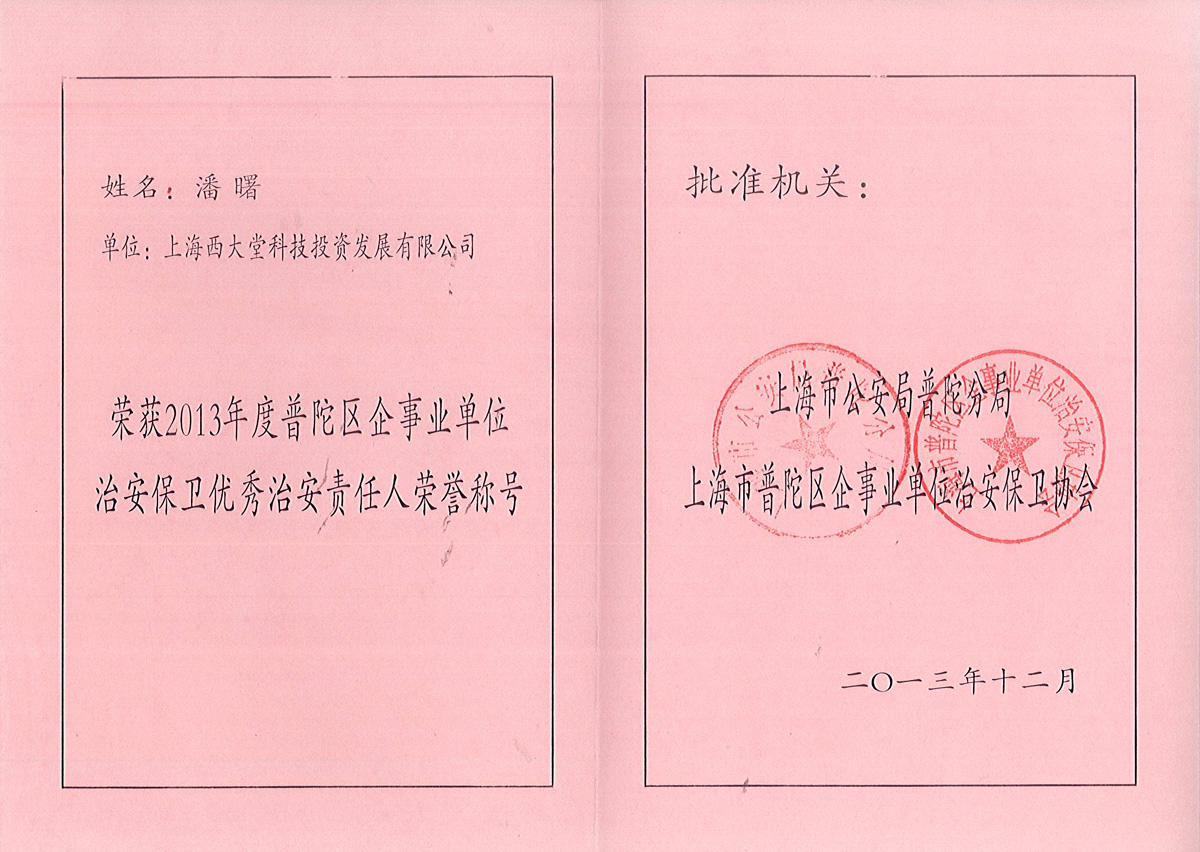 姓名：潘曙
单位：上海西大堂科技投资发展有限公司
荣获2013年度普陀区企事业单位
治安保卫优秀治安责任人荣誉称号
批准机关：
上海市公安局普陀分局
上海市普陀区企事业单位治安保卫协会
二〇一三年十二月